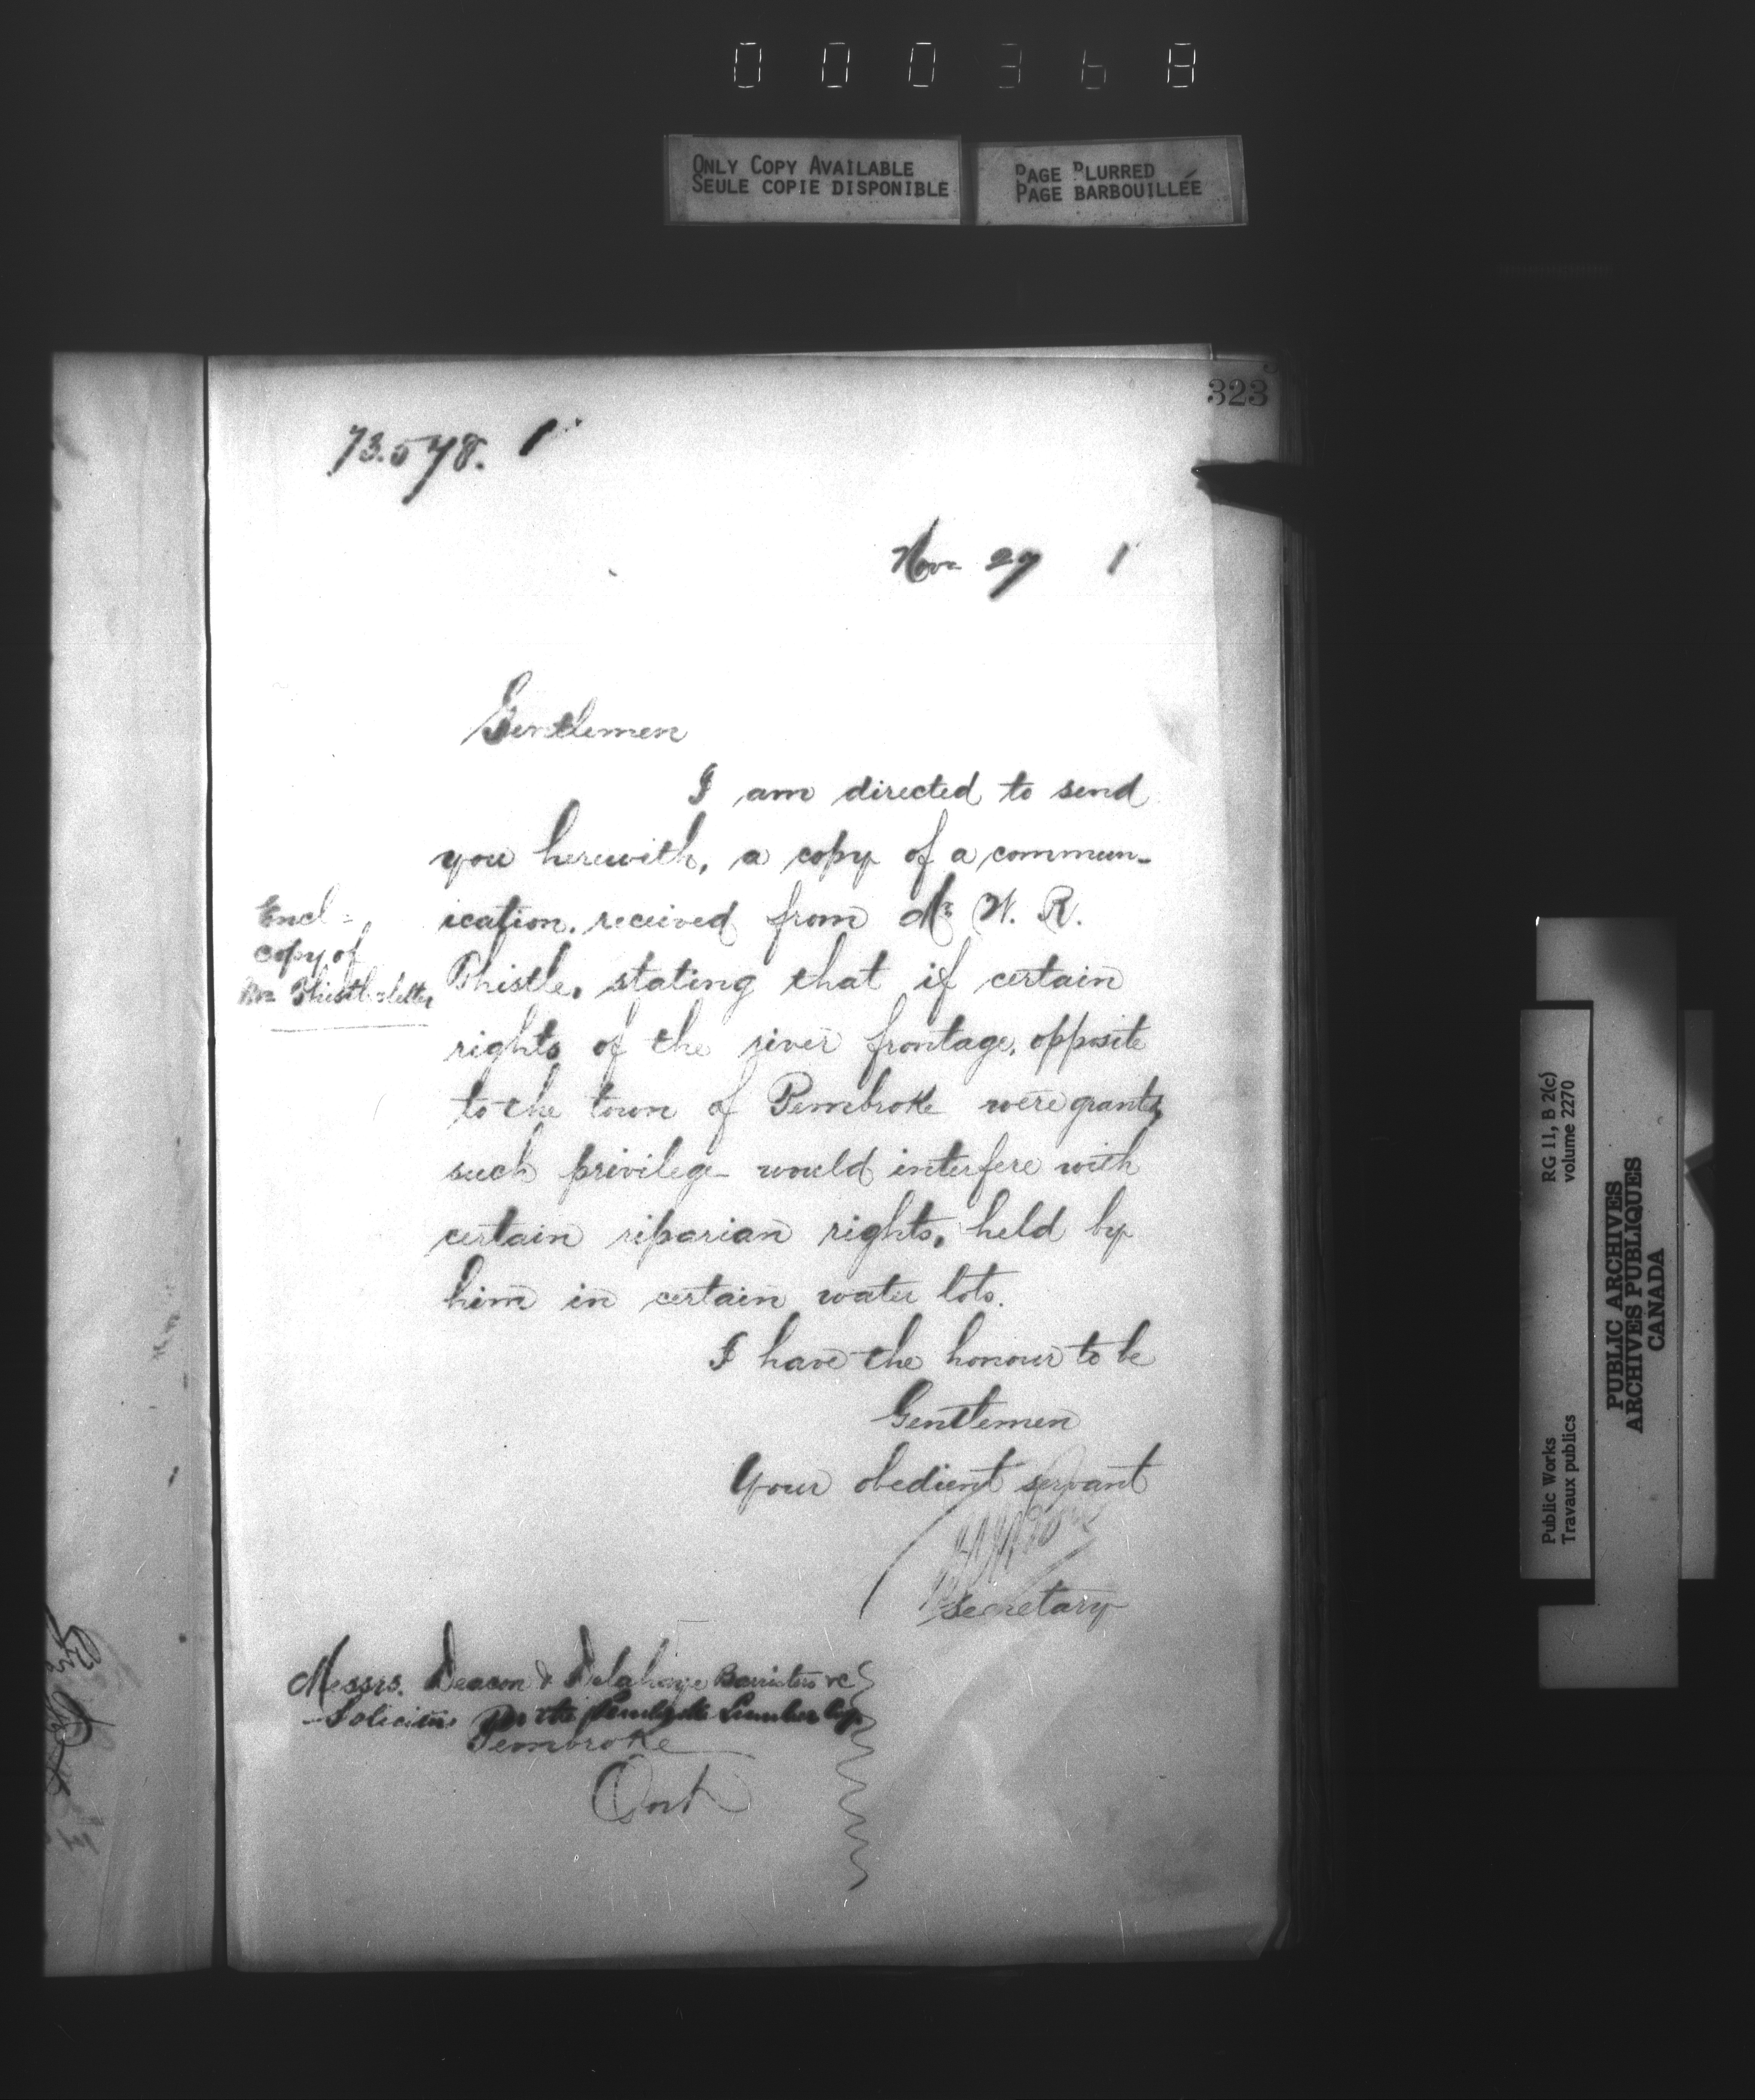 000368
ONLY COPY AVAILABLE
SEULE COPIE DISPONIBLE
PAGE BLURRED
PAGE BARBOUILLÉE
323
73.578. 1
Nov 27 1
Gentlemen
I am directed to send
you herewith, a copy of a commun-
ication. received from Mr W. R.
Thistle, stating that if certain
rights of the river frontage, opposite
to the town of Pembroke were granted
such privilege would interfere with
certain riparian rights, held by
him in certain water lots.
I have the honour to be
Gentlemen
Your obedient servant
Secretary
Encl =
copy of
Mr Thistle letter
Messrs. Deacon & Delahaye Barristers &c
Solicitors for the Pembroke Lumber Co
Pembroke
Ont
Public Works RG 11, B 2(c)
Travaux publics volume 2270
PUBLIC ARCHIVES
ARCHIVES PUBLIQUES
CANADA